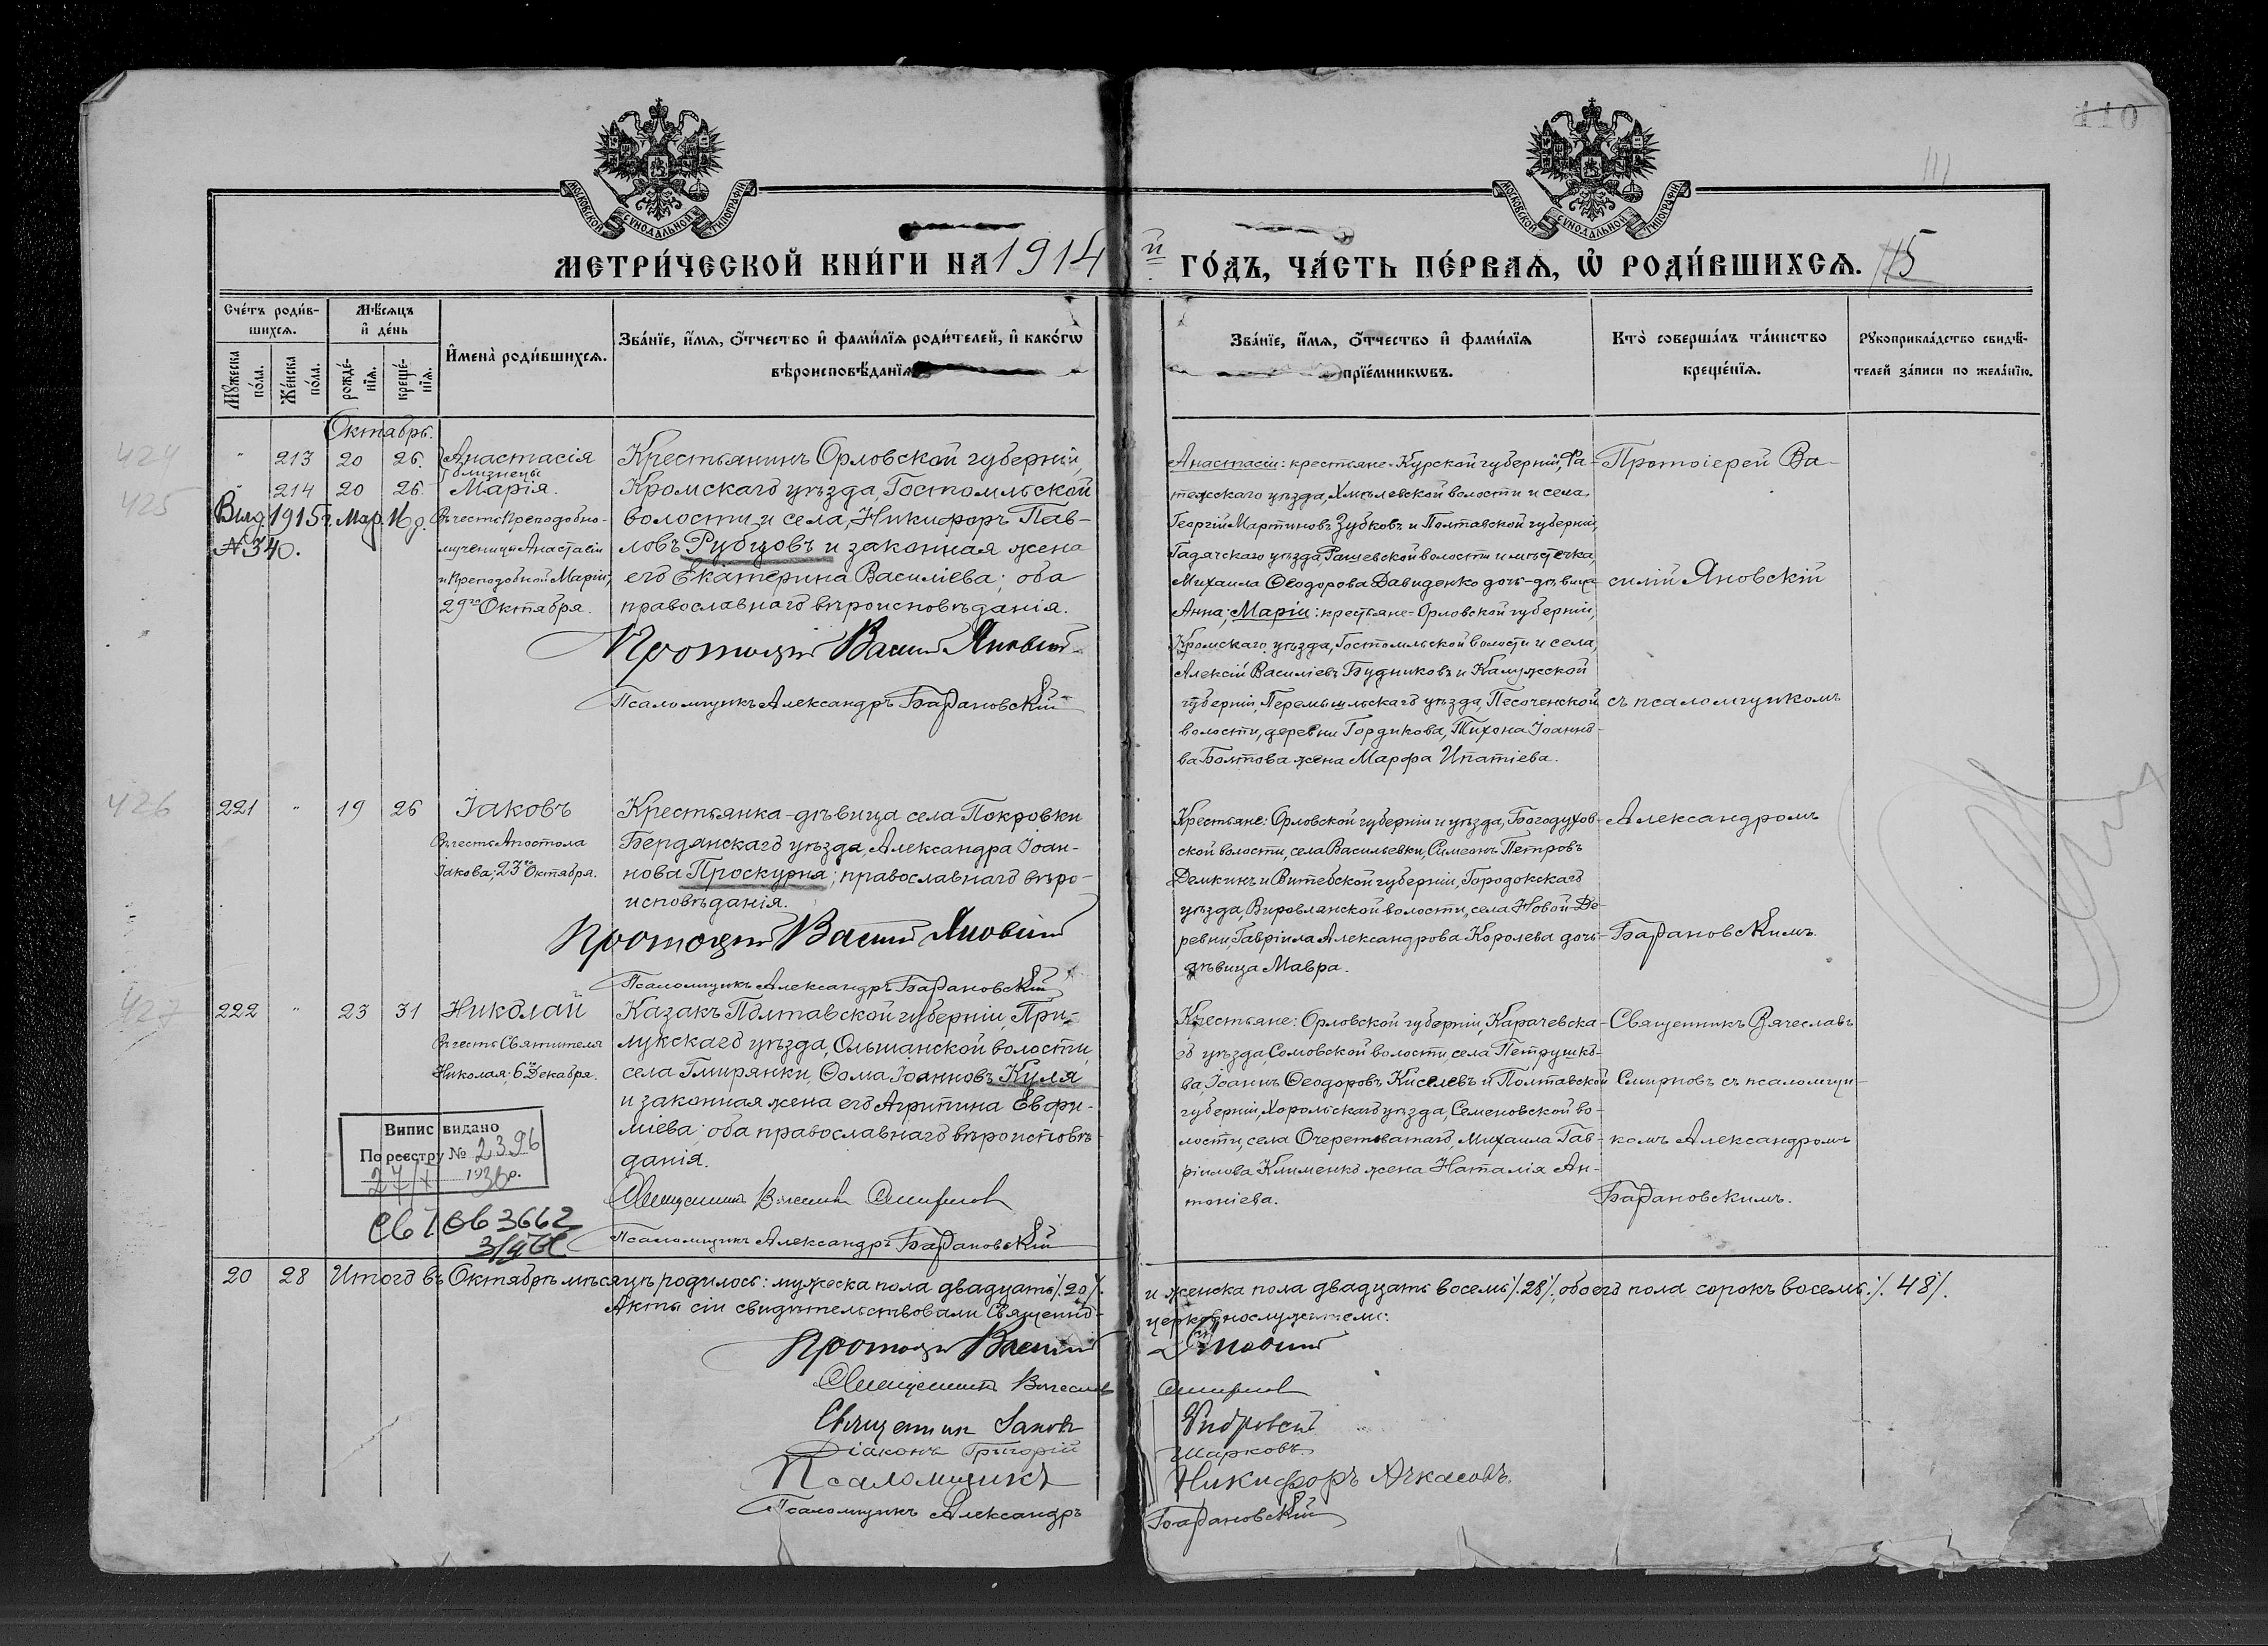 110
111
МОСКОВСКОЙ СѴНОДАЛЬНОЙ ТИПОГРАФІИ
МОСКОВСКОЙ СѴНОДАЛЬНОЙ ТИПОГРАФІИ
МЕТРИ́ЧЕСКОЙ КНИ́ГИ НА 1914 й ГО́ДЪ, ЧА́СТЬ ПЕ́РВАѦ, Ѡ҆ РОДИ́ВШИХСѦ. 115
Сче́тъ роди́в-
шихсѧ.
Мꙋ́жеска
по́ла.
Же́нска
по́ла.
Мѣ́сѧцъ
и҆ де́нь
рожде́-
нїѧ.
креще́-
нїѧ.
И҆мена̀ роди́вшихсѧ.
Зва́нїе, и҆́мѧ, ѻ҆́тчество и҆ фами́лїѧ роди́телей, и҆ како́гѡ
вѣроисповѣ́данїѧ
Зва́нїе, и҆́мѧ, ѻ҆́тчество и҆ фами́лїѧ
прїе́мникѡвъ.
Кто̀ соверша́лъ та́инство
креще́нїѧ.
Рꙋкоприкла́дство свидѣ́-
телей за́писи по жела́нїю.
Октябрь.
424
" 213 20 26. Анастасія
близнецы
425
" 214 20 26. Марія.
Выд. 1915 г. Мар. 16 д.
№ 340.
Въ честь Преподобно-
мученицы Анастасіи
и Преподобной Маріи,
29го Октября.
Крестьянинъ Орловской губерніи,
Кромскаго уѣзда, Гостомльской
волости и села, Никифоръ Пав-
ловъ Рубцовъ и законная жена
его Екатерина Василіева; оба
православнаго вѣроисповѣданія.
Протоіерей Василій Яновскій
Псаломщикъ Александръ Барановскій
Анастасіи: крестьяне-Курской губерніи, Фа-
тежскаго уѣзда, Хмѣлевской волости и села,
Георгій Мартиновъ Зубковъ и Полтавской губерніи,
Гадячскаго уѣзда, Рашевской волости и мѣстечка,
Михаила Ѳеодорова Давиденко дочь-дѣвица
Анна; Маріи: крестьяне-Орловской губерніи,
Кромскаго уѣзда, Гостомльской волости и села,
Алексій Василіевъ Будниковъ и Калужской
губерніи, Перемышльскаго уѣзда, Песоченской
волости, деревни Гордикова, Тихона Іоанно-
ва Болтова жена Марфа Ипатіева.
Протоіерей Ва-
силій Яновскій
съ псаломщикомъ
426
221 " 19 26 Іаковъ
Въ честь Апостола
Іакова; 23го Октября.
Крестьянка-дѣвица села Покровки
Бердянскаго уѣзда, Александра Іоан-
нова Проскурня; православнаго вѣро-
исповѣданія.
Протоіерей Василій Яновскій
Псаломщикъ Александръ Барановскій
Крестьяне: Орловской губерніи и уѣзда, Богодухов-
ской волости, села Васильевки, Симеонъ Петровъ
Демкинъ и Витебской губерніи, Городокскаго
уѣзда, Вировлянской волости, села Новой-Де-
ревни, Гавріила Александрова Королева дочь-
дѣвица Мавра.
Александромъ
Барановскимъ.
427
222 " 23 31 Николай
Въ честь Святителя
Николая; 6го Декабря.
Казакъ Полтавской губерніи, При-
лукскаго уѣзда, Ольшанской волости,
села Гмирянки, Ѳома Іоанновъ Куля
и законная жена его Агрипина Евфи-
міева; оба православнаго вѣроисповѣ-
данія.
Священникъ Вячеславъ Смирновъ
Псаломщикъ Александръ Барановскій
Крестьяне: Орловской губерніи, Карачевска-
го уѣзда, Сомовской волости, села Петрушко-
ва, Іоаннъ Ѳеодоровъ Киселевъ и Полтавской
губерніи, Хорольскаго уѣзда, Семеновской во-
лости, села Очеретоватаго, Михаила Гав-
ріилова Клименко жена Наталія Ан-
тоніева.
Священникъ Вячеславъ
Смирновъ съ псаломщи-
комъ Александромъ
Барановскимъ.
Випис видано
По реєстру № 2396
27/X 1936 р.
3662
20 28 Итого въ Октябрѣ мѣсяцѣ родилось: мужеска пола двадцать /.20/. и женска пола двадцать восемь /.28/., обоего пола сорокъ восемь ./. 48/.
Акты сіи свидѣтельствовали Священно-церковнослужители:
Протоіерей Василій Яновскій
Священникъ Вячеславъ Смирновъ
Священник Іаковъ
Діаконъ Григорій Шарковъ
Псаломщикъ Никифоръ Ачкасовъ.
Псаломщикъ Александръ Барановскій